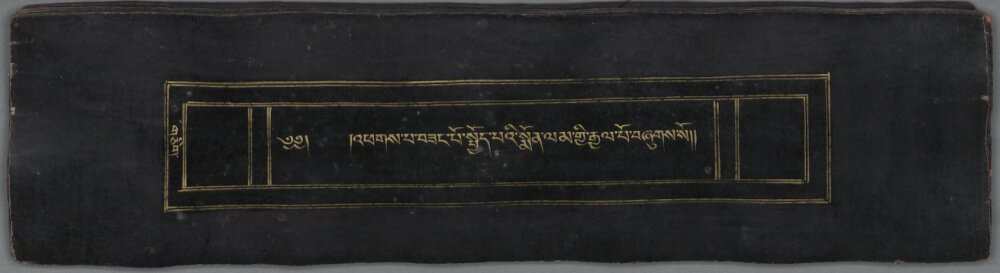 ༄༅། །འཕགས་པ་བཟང་པོ་སྤྱོད་པའི་སྨོན་ལམ་གྱི་རྒྱལ་པོ་བཞུགས་སོ།།